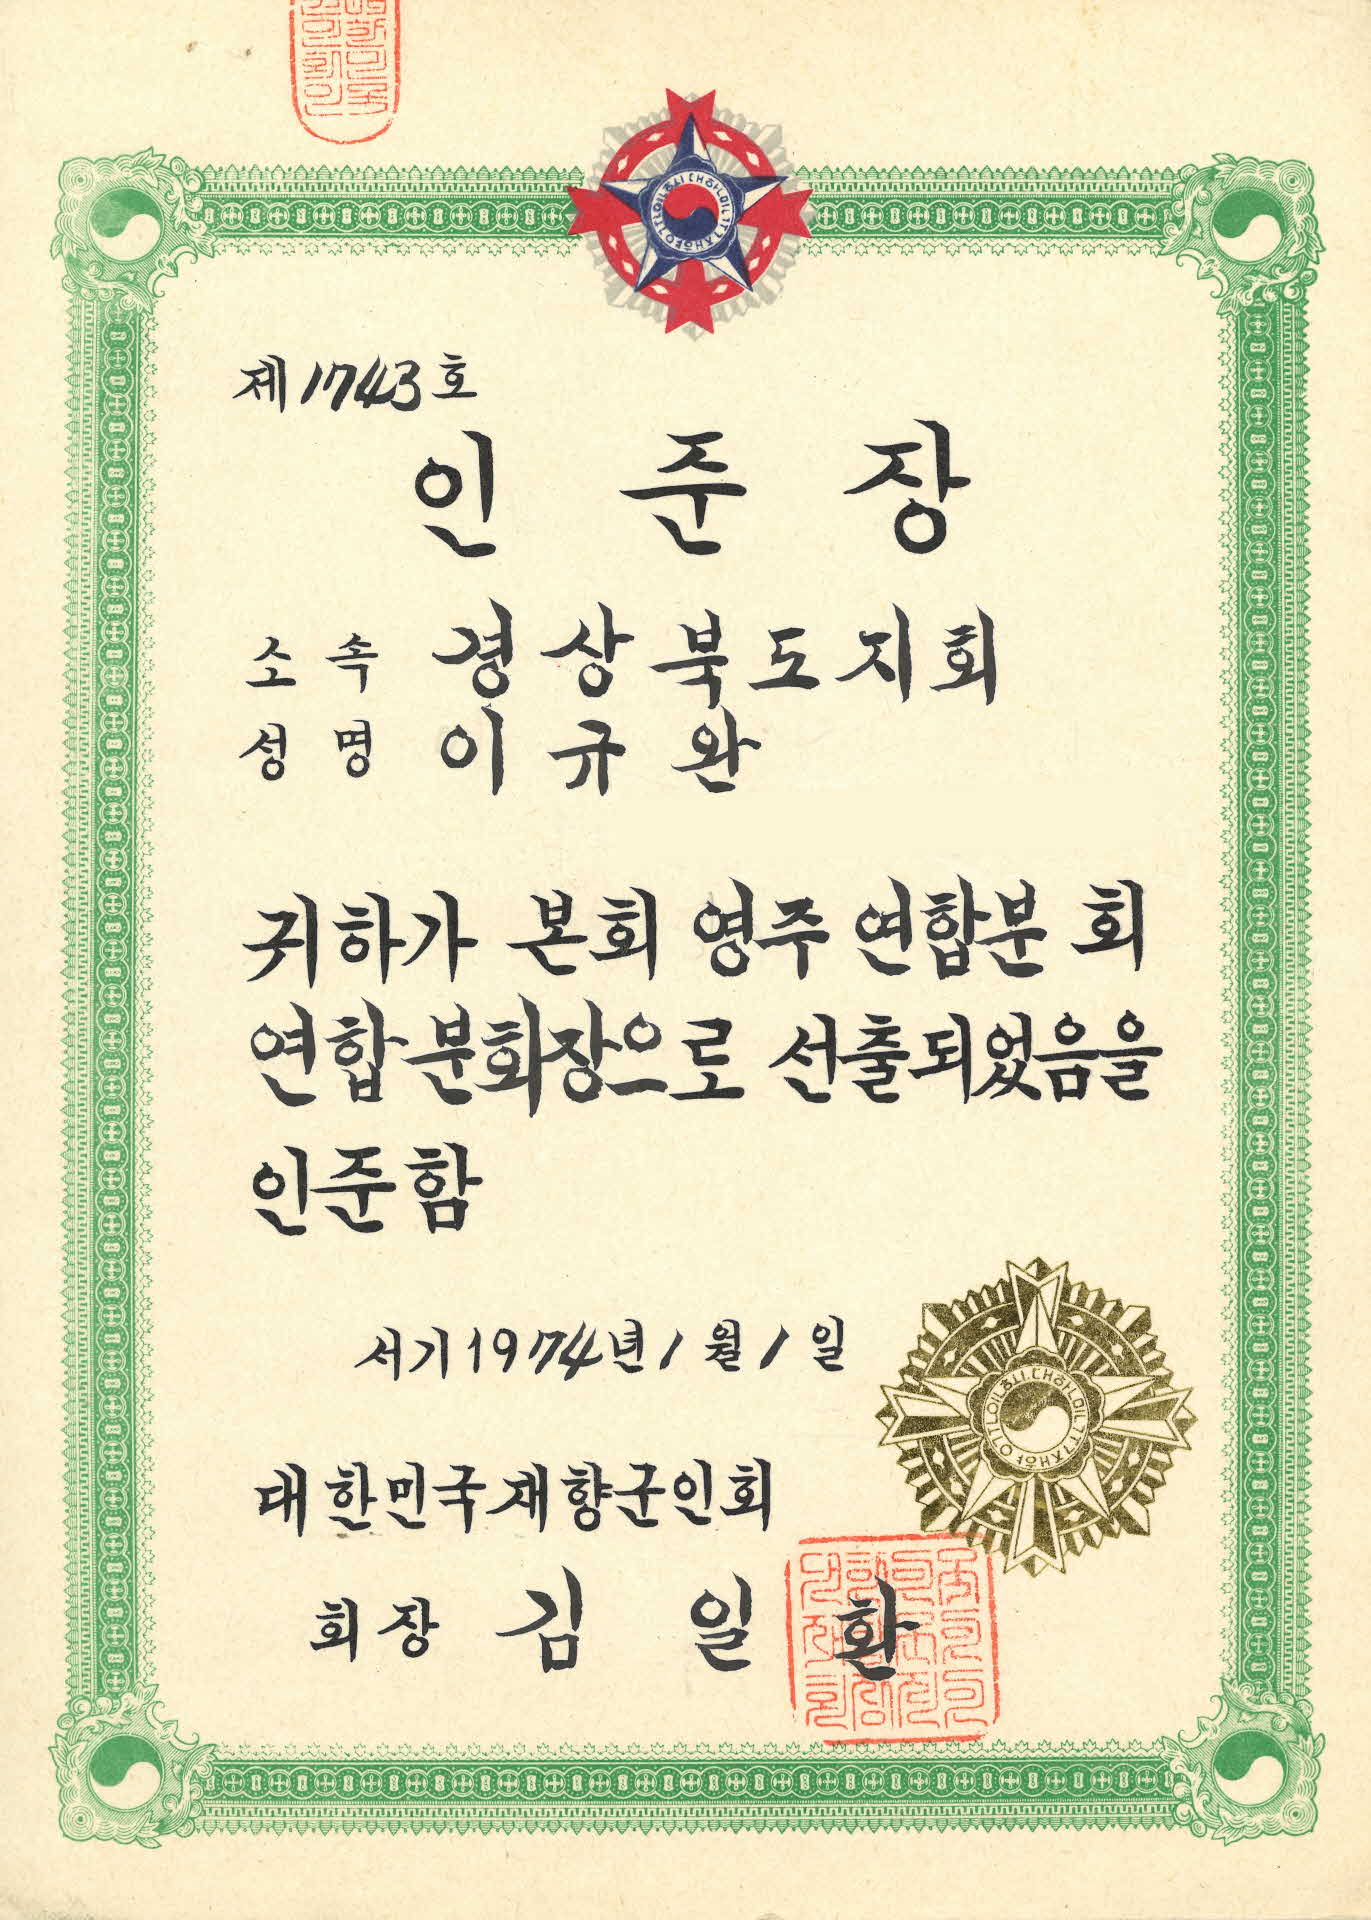 제1743호
인준장
소속 경상북도지회
성명 이규완
귀하가 본회 영주 연합분회
연합분회장으로 선출되었음을
인준함
서기1974년1월1일
대한민국재향군인회
회장 김일환